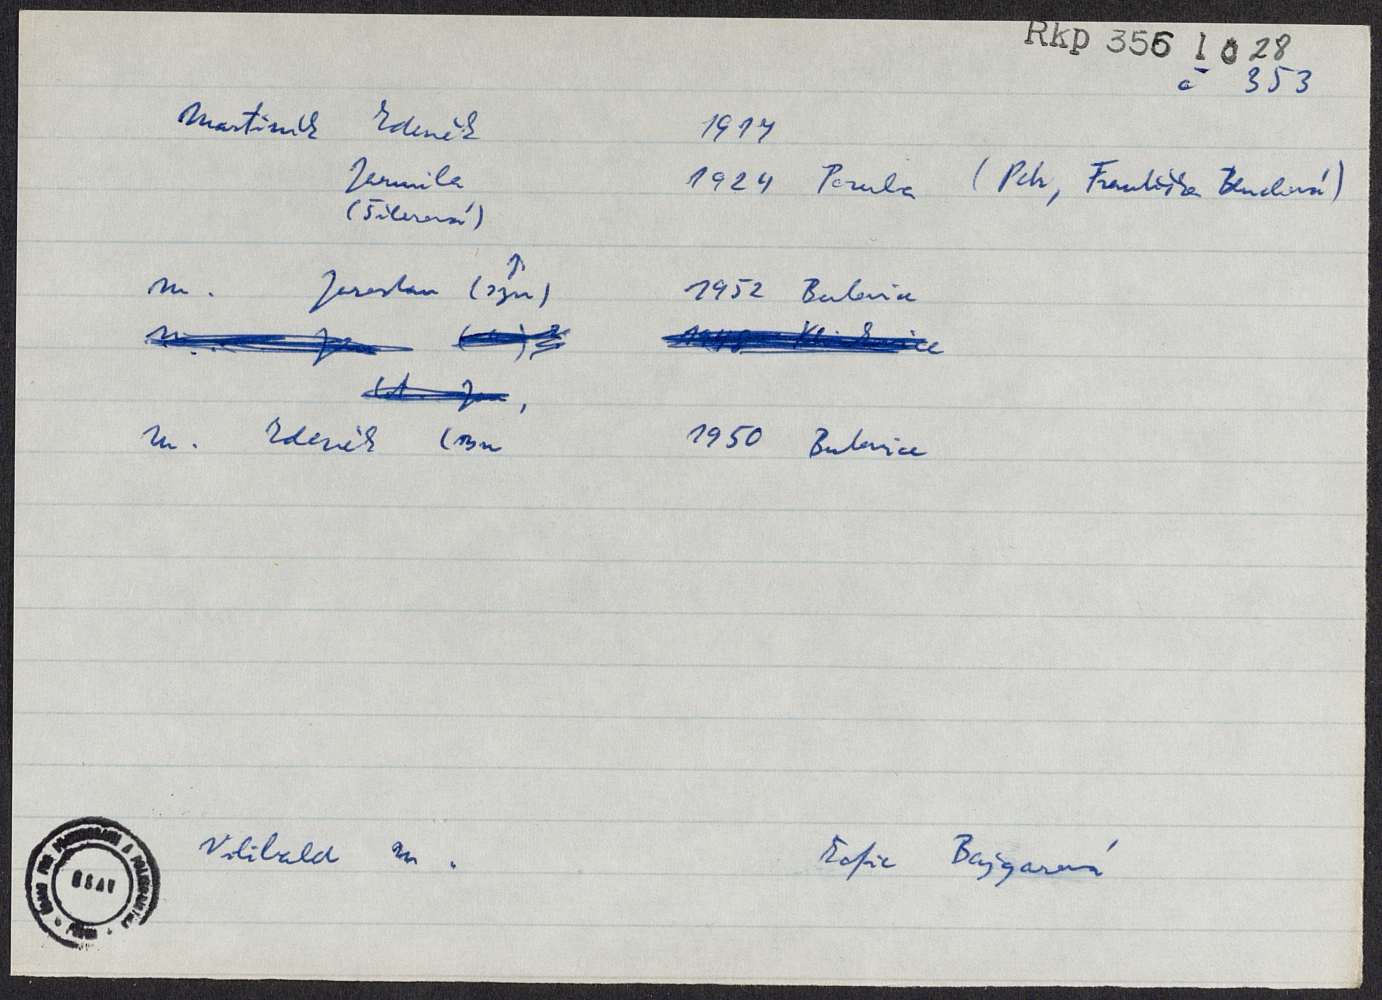 Rkp 356 1 0 28
č 353
Martiník Zdeněk 1917
Jarmila 1924 Poruba (Petr, Františka Bluchová)
(Šilerová)
m. Jaroslav (syn) 1952 Butovice
m. Zdeněk (syn 1950 Butovice
Vilibald m. Žofie Bajgarová
ČSAV